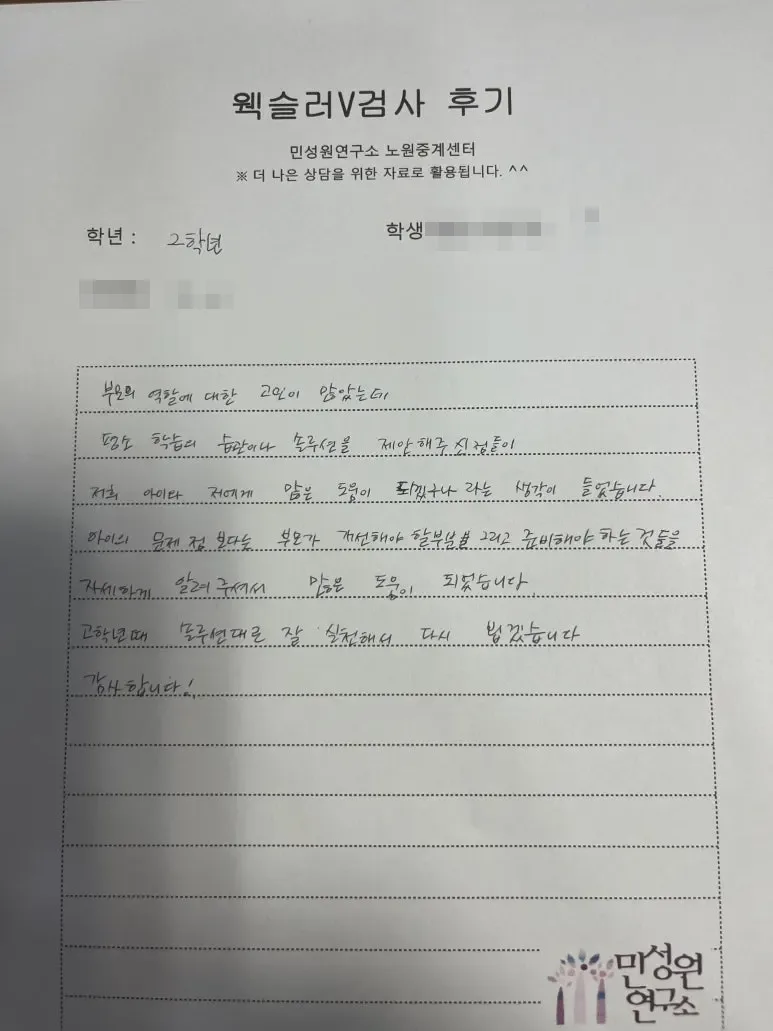 웩슬러V검사 후기
민성원연구소 노원중계센터
※ 더 나은 상담을 위한 자료로 활용됩니다. ^^
학년 : 2학년
학생
부모의 역할에 대한 고민이 많았는데
평소 학습의 습관이나 솔루션을 제안해주신점들이
저희 아이나 저에게 많은 도움이 되겠구나 라는 생각이 들었습니다.
아이의 문제점 보다는 부모가 개선해야 할부분을 그리고 준비해야 하는 것들을
자세하게 알려주셔서 많은 도움이 되었습니다.
고학년때 솔루션대로 잘 실천해서 다시 뵙겠습니다
감사합니다!
민성원
연구소